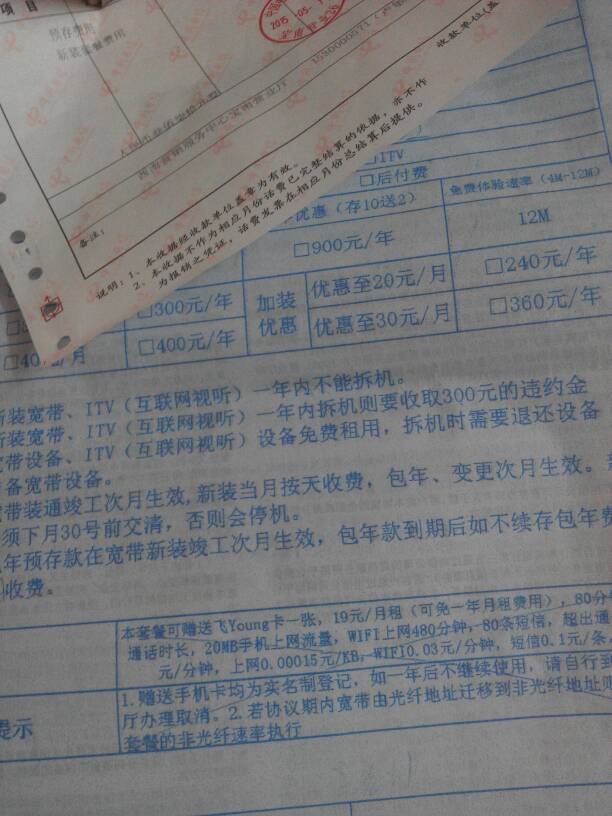 项目
预存费用
新装套餐费用
2015
收款单位(盖
备注:
说明:1、本收据经收款单位盖章为有效。
2、本收据不作为相应月份话费已完整结算的依据,亦不作
为报销之凭证,话费发票在相应月份总结算后提供。
□ITV
□后付费
优惠(存10送2)
免费体验速率(4M-12M)
□900元/年
12M
□300元/年
加装
优惠
优惠至20元/月
□240元/年
□400元/年
优惠至30元/月
□360元/年
新装宽带、ITV(互联网视听)一年内不能拆机。
新装宽带、ITV(互联网视听)一年内拆机则要收取300元的违约金
宽带设备、ITV(互联网视听)设备免费租用,拆机时需要退还设备
备宽带设备。
带装通竣工次月生效,新装当月按天收费,包年、变更次月生效。
须下月30号前交清,否则会停机。
年预存款在宽带新装竣工次月生效,包年款到期后如不续存包年费
收费。
本套餐可赠送飞Young卡一张,19元/月租(可免一年月租费用),80分
通话时长,20MB手机上网流量,WIFI上网480分钟,80条短信,超出通
元/分钟,上网0.00015元/KB,WIFI0.03元/分钟,短信0.1元/条。
提示
1.赠送手机卡均为实名制登记,如一年后不继续使用,请自行到
厅办理取消。2.若协议期内宽带由光纤地址迁移到非光纤地址则
套餐的非光纤速率执行